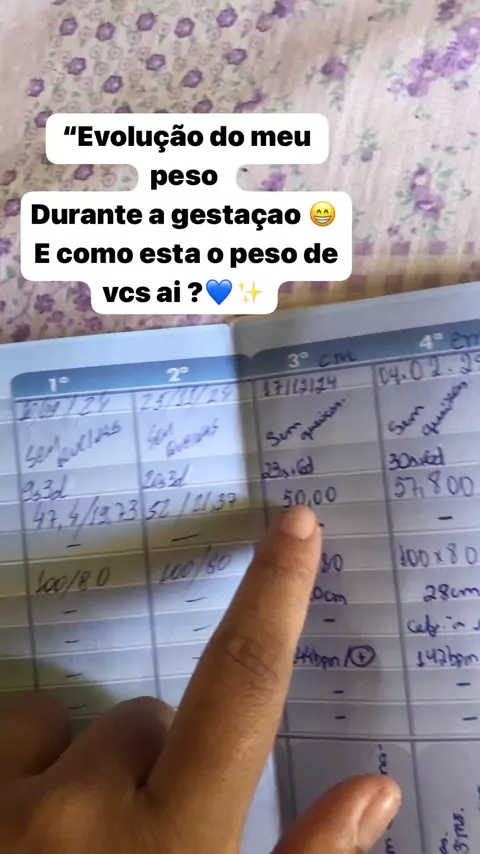 “Evolução do meu
peso
Durante a gestaçao 😁
E como esta o peso de
vcs ai ?💙✨
1ª 2ª 3ª cm 4ª
25/11/24 17/12/24 04.02.2
Sem queixas Sem queixas Sem queixas. Sem queixas.
9s3d 20s3d 23s6d 30s6d
47,4/19,73 52/21,37 50,00 57,800
- - - -
100/80 100/80 80 100x80
- - 0cm 28cm
- - - Cef.
- - 44bpm/+ 142bpm
- - - -
- - - -